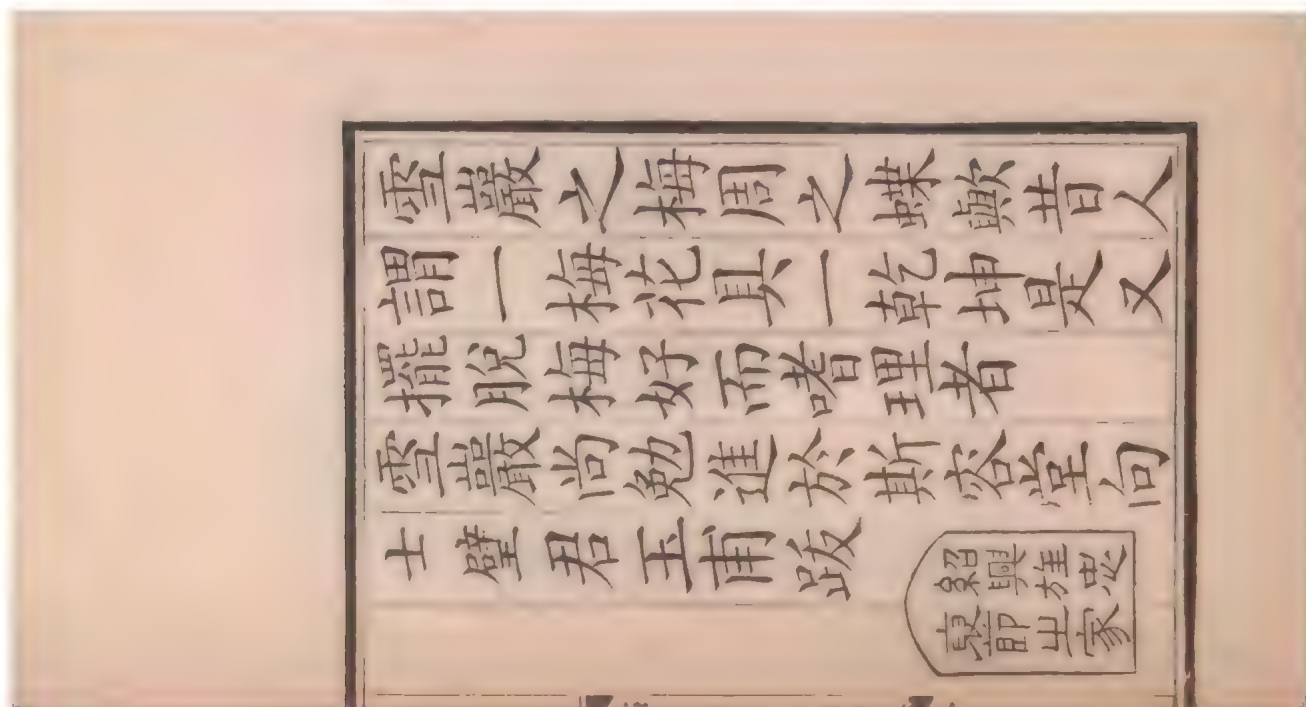 雪巖之梅周之蝶歟昔人
謂一梅花具一乾坤是又
擺脫梅好而嗜理者
雪巖尚勉進於斯容堂向
士璧君玉甫跋
紹興旌忠
襃節之家